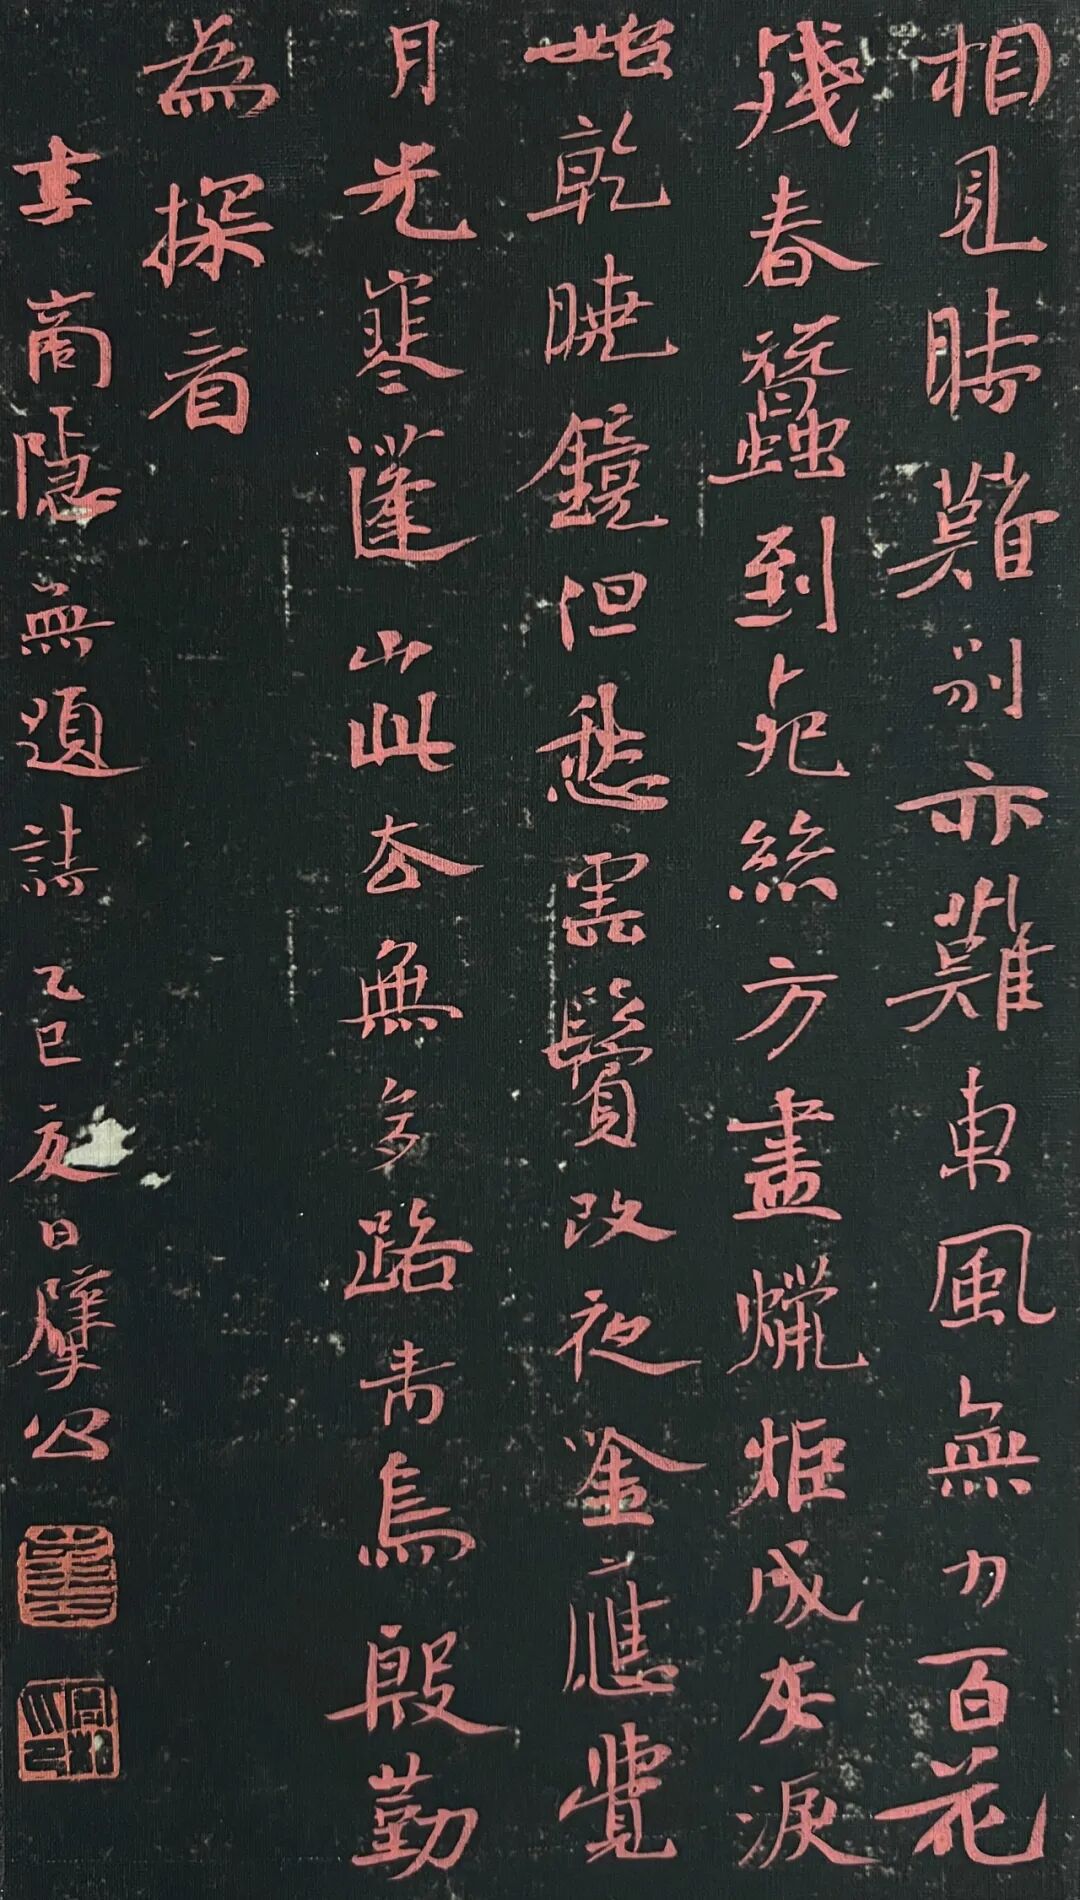 相見時難別亦難東風無力百花
殘春蠶到死絲方盡蠟炬成灰淚
始乾曉鏡但愁雲鬢改夜吟應覺
月光寒蓬山此去無多路青鳥殷勤
為探看
李商隱無題詩乙巳夏日公